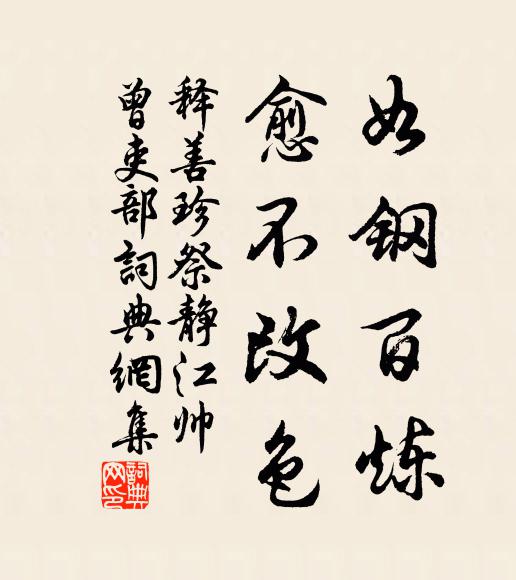 如鋼百炼
愈不改色
释善珍祭静江帅
曾吏部詞典網集
詞典
网印